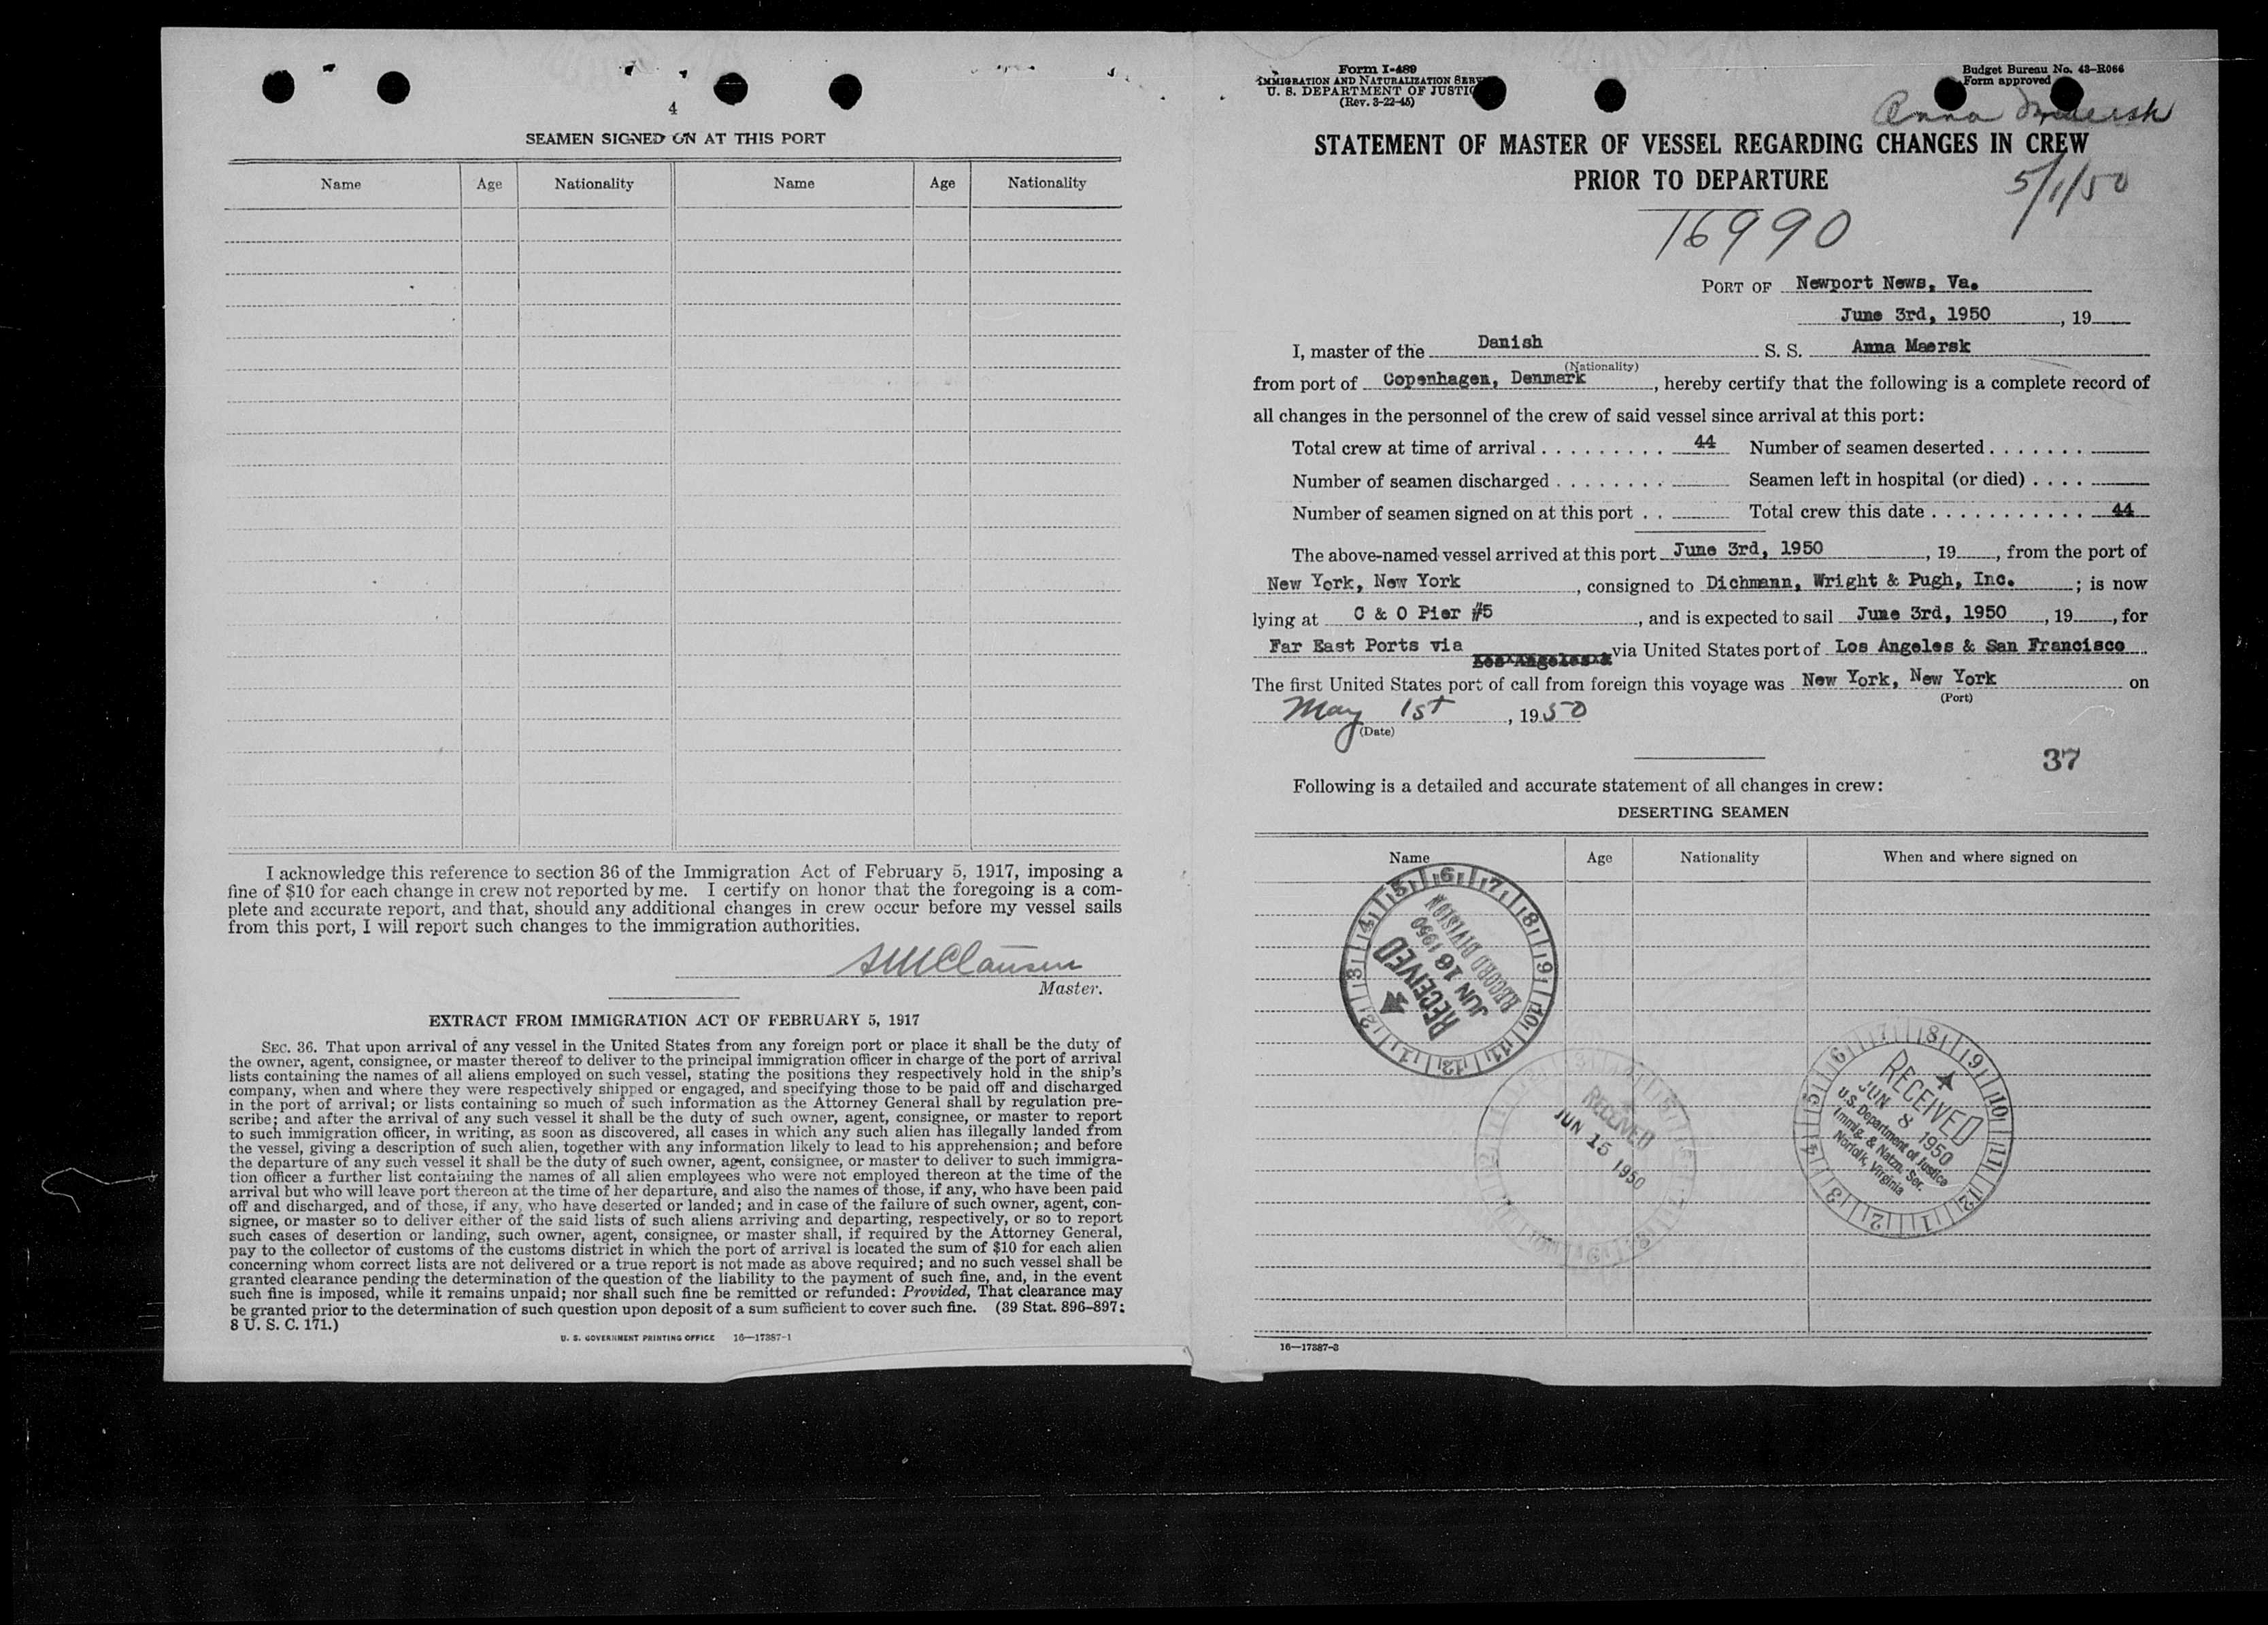 4
SEAMEN SIGNED ON AT THIS PORT
Name Age Nationality Name Age Nationality
I acknowledge this reference to section 36 of the Immigration Act of February 5, 1917, imposing a
fine of $10 for each change in crew not reported by me. I certify on honor that the foregoing is a com-
plete and accurate report, and that, should any additional changes in crew occur before my vessel sails
from this port, I will report such changes to the immigration authorities.
Master.
EXTRACT FROM IMMIGRATION ACT OF FEBRUARY 5, 1917
SEC. 36. That upon arrival of any vessel in the United States from any foreign port or place it shall be the duty of
the owner, agent, consignee, or master thereof to deliver to the principal immigration officer in charge of the port of arrival
lists containing the names of all aliens employed on such vessel, stating the positions they respectively hold in the ship's
company, when and where they were respectively shipped or engaged, and specifying those to be paid off and discharged
in the port of arrival; or lists containing so much of such information as the Attorney General shall by regulation pre-
scribe; and after the arrival of any such vessel it shall be the duty of such owner, agent, consignee, or master to report
to such immigration officer, in writing, as soon as discovered, all cases in which any such alien has illegally landed from
the vessel, giving a description of such alien, together with any information likely to lead to his apprehension; and before
the departure of any such vessel it shall be the duty of such owner, agent, consignee, or master to deliver to such immigra-
tion officer a further list containing the names of all alien employees who were not employed thereon at the time of the
arrival but who will leave port thereon at the time of her departure, and also the names of those, if any, who have been paid
off and discharged, and of those, if any, who have deserted or landed; and in case of the failure of such owner, agent, con-
signee, or master so to deliver either of the said lists of such aliens arriving and departing, respectively, or so to report
such cases of desertion or landing, such owner, agent, consignee, or master shall, if required by the Attorney General,
pay to the collector of customs of the customs district in which the port of arrival is located the sum of $10 for each alien
concerning whom correct lists are not delivered or a true report is not made as above required; and no such vessel shall be
granted clearance pending the determination of the question of the liability to the payment of such fine, and, in the event
such fine is imposed, while it remains unpaid; nor shall such fine be remitted or refunded: Provided, That clearance may
be granted prior to the determination of such question upon deposit of a sum sufficient to cover such fine. (39 Stat. 896–897;
8 U. S. C. 171.)
U. S. GOVERNMENT PRINTING OFFICE 16—17387-1
Form I-489
IMMIGRATION AND NATURALIZATION
U. S. DEPARTMENT OF
(Rev. 3-22-45)
Budget Bureau No. 43-R066
Form approved
Anna Maersk
STATEMENT OF MASTER OF VESSEL REGARDING CHANGES IN CREW
PRIOR TO DEPARTURE
5/1/50
16990
PORT OF Newport News, Va.
June 3rd, 1950, 19
I, master of the Danish S. S. Anna Maersk
(Nationality)
from port of Copenhagen, Denmark, hereby certify that the following is a complete record of
all changes in the personnel of the crew of said vessel since arrival at this port:
Total crew at time of arrival . . . . . . . . . 44 Number of seamen deserted . . . . . . .
Number of seamen discharged . . . . . . . . Seamen left in hospital (or died) . . . .
Number of seamen signed on at this port . . Total crew this date . . . . . . . . . . . . 44
The above-named vessel arrived at this port June 3rd, 1950, 19, from the port of
New York, New York, consigned to Dichmann, Wright & Pugh, Inc.; is now
lying at C & O Pier #5, and is expected to sail June 3rd, 1950, 19, for
Far East Ports via Los Angeles & via United States port of Los Angeles & San Francisco
The first United States port of call from foreign this voyage was New York, New York on
(Port)
May 1st, 1950
(Date)
37
Following is a detailed and accurate statement of all changes in crew:
DESERTING SEAMEN
Name Age Nationality When and where signed on
RECEIVED
JUN 16 1950
RECORD DIVISION
RECEIVED
JUN 15 1950
RECEIVED
JUN 8 1950
U.S. Department of Justice
Immig. & Natzn. Ser.
Norfolk, Virginia
16—17387-3